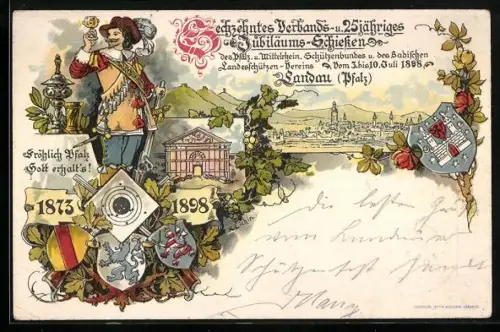 Sechzehntes Verbands- u. 25jähriges
Jubiläums-Schießen
des Pfälz. u. Mittelrhein. Schützenbundes u. des Badischen
Landesschützen-Vereins Vom 3. bis 10. Juli 1898.
Landau (Pfalz)
Fröhlich Pfalz
Gott erhalt's!
1873
1898
die besten Grüße
vom Landauer
Schützenfest